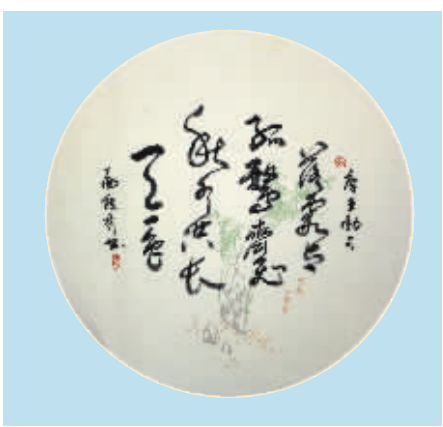 唐王勃句
落霞与
孤鹜齊飛
秋水共长
天一色